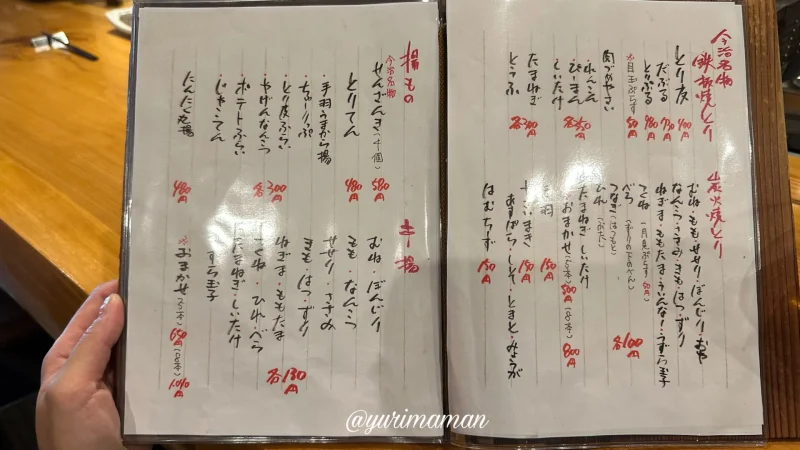 今治名物
鉄板焼とり
とり皮 400円
だぶる 730円
とりぶる 480円
目玉ぷらす 50円
肉づめやさい
れんこん
ぴーまん
しいたけ 各350円
たまねぎ
とうふ 各300円
炭火焼とり
むね・もも・せせり・ぼんじり・おや
なんこつ・ささみ・きも・はつ・ずり
ねぎま・ももたま・うんなー・うずら玉子
つくね (月見ぷらす50円)
べら (ずりの下のべん)
つなぎ (はつもと)
各100円
たまねぎ しいたけ
おまかせ(5本) 500円 (8本) 800円
手羽 150円
150円
あすぱら・しそ・とまと・みょうが
はむちーず 150円
揚もの
今治名物
せんざんき(4個) 580円
とりてん 480円
・手羽うまから揚
・ちゅーりっぷ
・とり皮ぷらい
・やげんなんこつ 各300円
・ポテトふらい
・じゃこてん
にんにく丸揚 480円
串揚
むね・ぼんじり
もも・なんこつ
せせり・ささみ
きも・はつ・ずり
ねぎま・ももたま
つくね・ひれ・べら
たまねぎ・しいたけ
うずら玉子
各130円
おまかせ(5本) 650円 (8本) 1,040円
@yurimaman